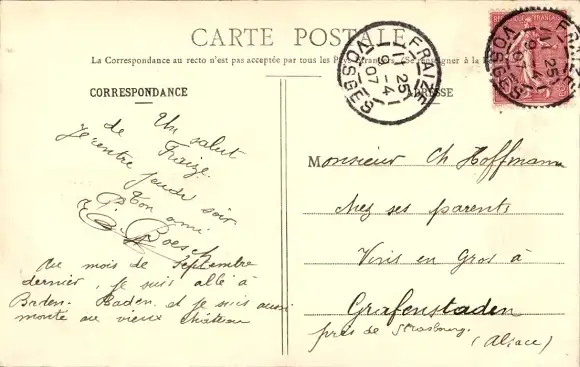 CARTE POSTALE
La Correspondance au recto n'est pas acceptée par tous les Pays étrangers. (Se renseigner à la
CORRESPONDANCE
ADRESSE
FRAIZE
11 25
9 - 4
07
VOSGES
REPUBLIQUE FRANÇAISE
FRAIZE
11 25
9 4
07
VOSGES
Un salut
de Fraize.
Je rentre jeudi soir
Ton ami
Boesch
Au mois de Septembre
dernier, je suis allé à
Baden-Baden. et je suis aussi
monté au vieux château
Monsieur Ch Hoffmann
chez ses parents
Vins en Gros à
Grafenstaden
près de Strasbourg.
(Alsace)